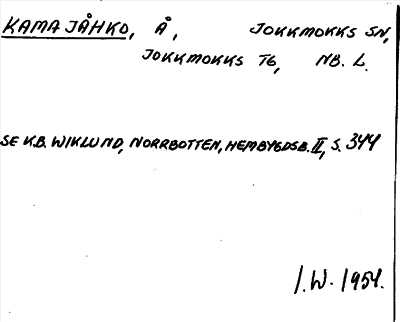 KAMAJÅHKO, Å, JOKKMOKKS SN,
JOKKMOKKS TG, NB. L.
SE K.B. WIKLUND, NORRBOTTEN, HEMBYGDSB. II, S. 344
I.W. 1954.